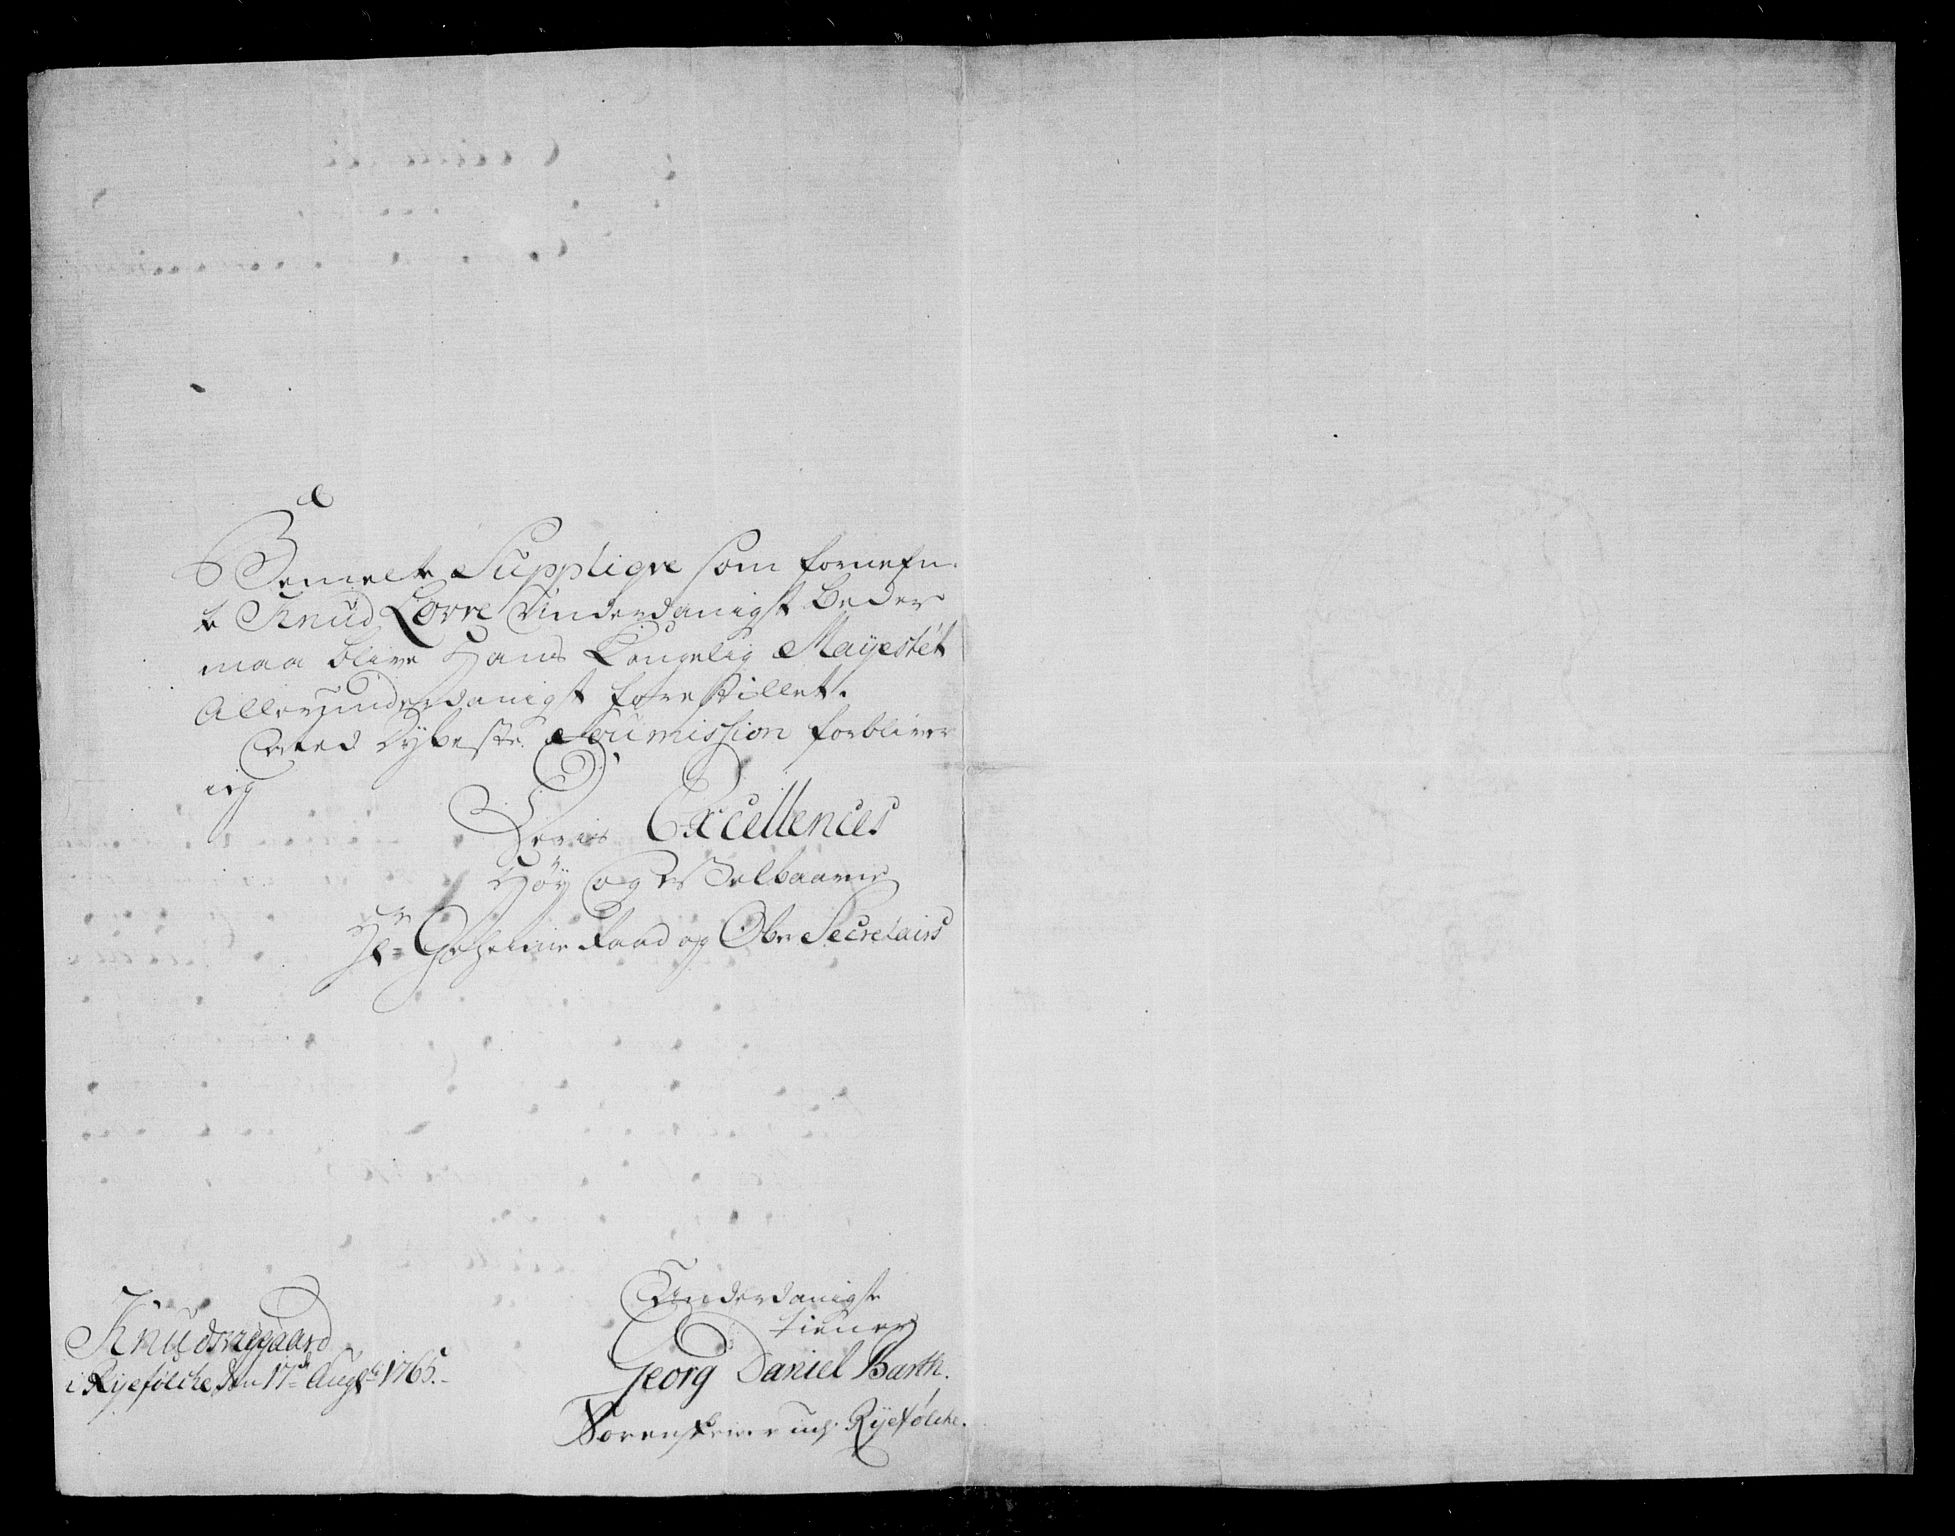 Bemelte Supplique som fornefn-
te Knud Lovre Underdanigst beder
maa blive Hans Kongelig Mayestét
Allerunderdanigst forestillet.
Med dybeste Soumission forbliver
ieg
Deris Excellences
Høy og Velbaarne
Hr Geheime Raad og Ober Secretairs
Underdanigste
tiener
Georg Daniel Barth.
Sorenskriver udj Ryefølche.
Knudsvigaard
i Ryefølche, den 17de Augsti 1765.